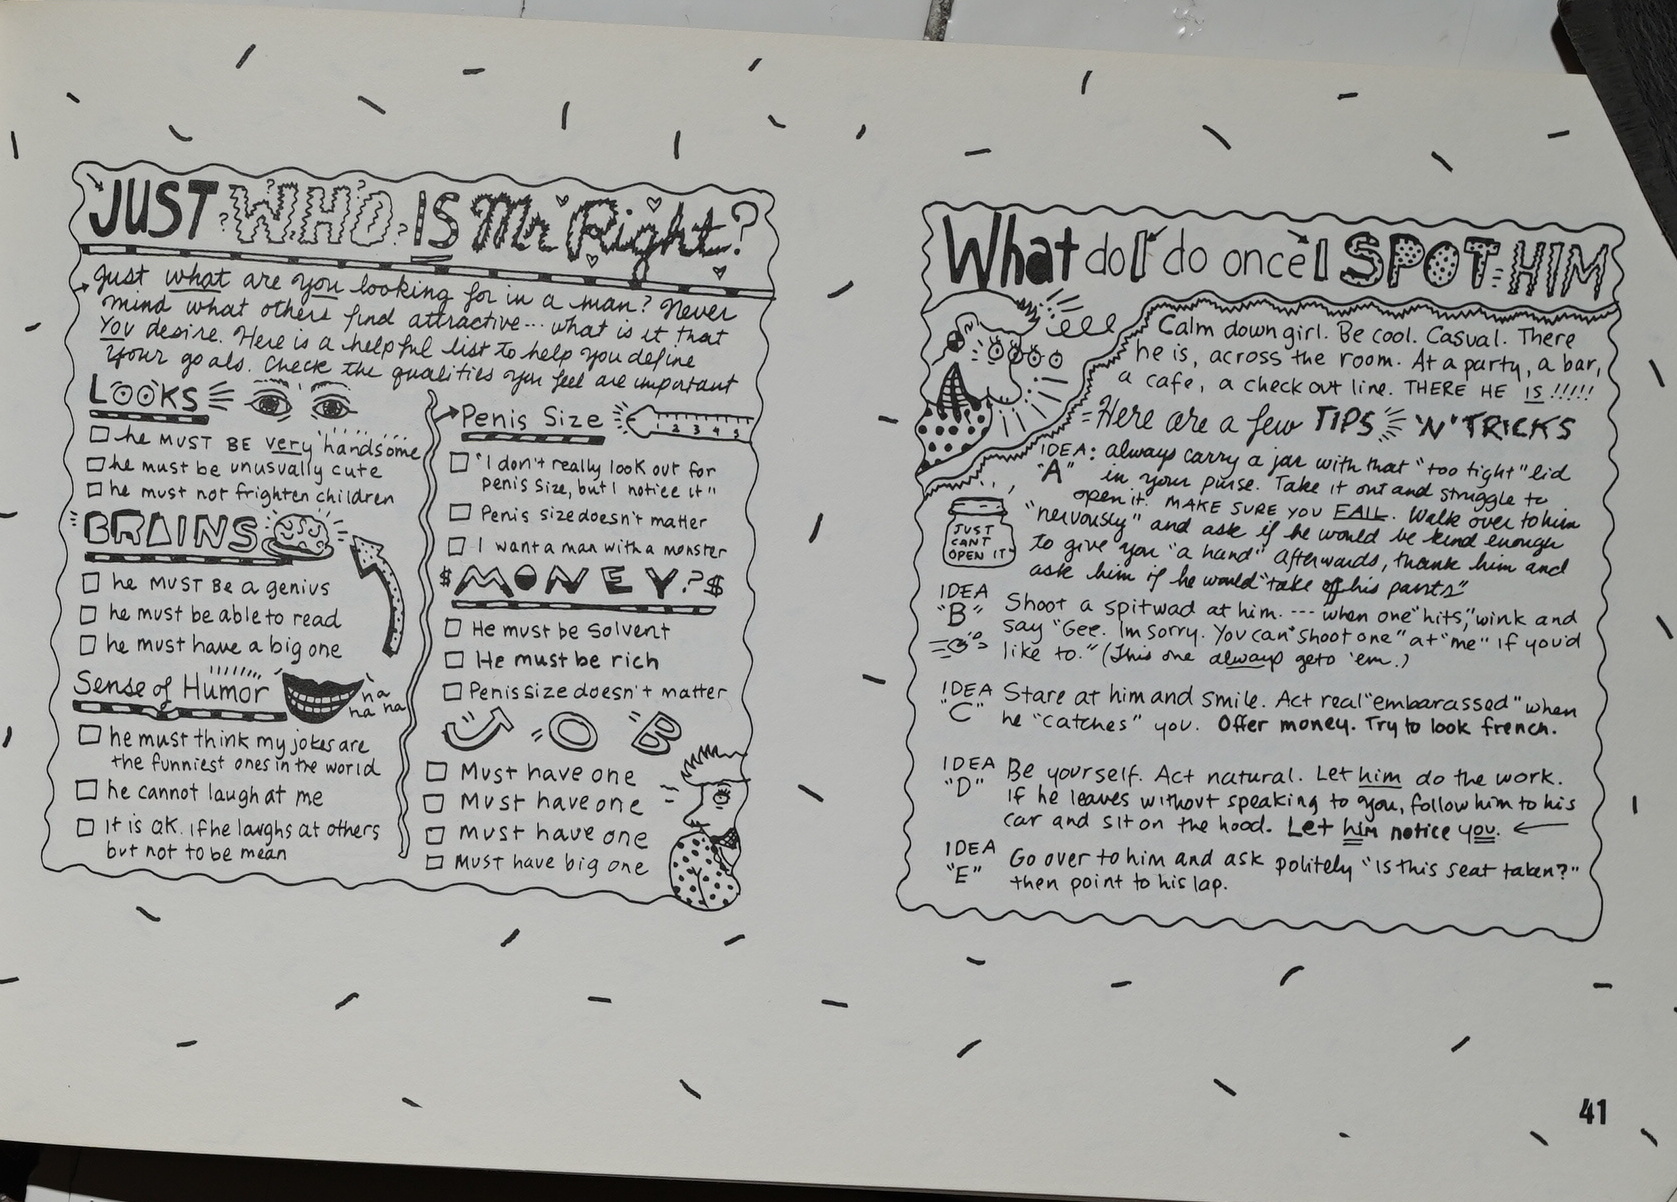 JUST WHO IS Mr Right?
Just what are you looking for in a man? Never
mind what others find attractive... what is it that
You desire. Here is a helpful list to help you define
your goals. Check the qualities you feel are important
LOOKS
he MUST BE very handsome
he must be unusually cute
he must not frighten children
BRAINS
he MUST Be a genius
he must be able to read
he must have a big one
Sense of Humor
ha
ha ha
he must think my jokes are
the funniest ones in the world
he cannot laugh at me
It is OK. if he laughs at others
but not to be mean
Penis Size
1 2 3 4 5
"I don't really look out for
penis size, but I notice it"
Penis size doesn't matter
I want a man with a monster
$MONEY?$
He must be solvent
He must be rich
Penis size doesn't matter
JOB
Must have one
Must have one
Must have one
Must have big one
What do I do once I SPOT HIM
Calm down girl. Be cool. Casual. There
he is, across the room. At a party, a bar,
a cafe, a check out line. THERE HE IS!!!!!
Here are a few TIPS 'N' TRICKS
IDEA: always carry a jar with that "too tight" lid
"A" in your purse. Take it out and struggle to
open it. MAKE SURE YOU FAIL. Walk over to him
"nervously" and ask if he would be kind enough
to give you "a hand" Afterwards, thank him and
ask him if he would "take off his pants"
JUST
CANT
OPEN IT
IDEA
"B" Shoot a spitwad at him. --- when one "hits," wink and
say "Gee. Im sorry. You can "shoot one" at "me" if you'd
like to." (This one always gets 'em.)
IDEA Stare at him and smile. Act real "embarassed" when
"C" he "catches" you. Offer money. Try to look french.
IDEA Be yourself. Act natural. Let him do the work.
"D" If he leaves without speaking to you, follow him to his
car and sit on the hood. Let him notice you.
IDEA Go over to him and ask politely "Is this seat taken?"
"E" then point to his lap.
41